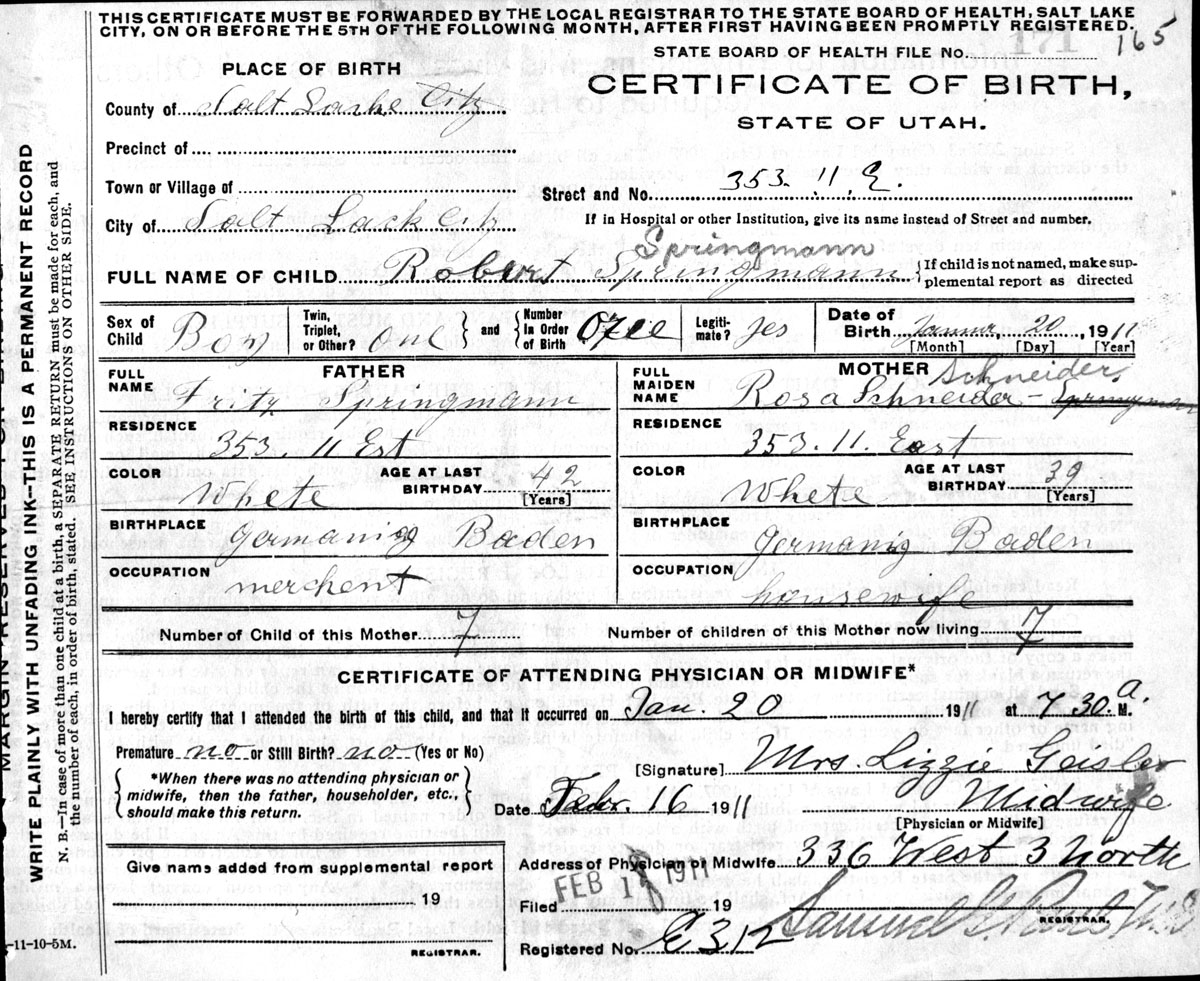 THIS CERTIFICATE MUST BE FORWARDED BY THE LOCAL REGISTRAR TO THE STATE BOARD OF HEALTH, SALT LAKE
CITY, ON OR BEFORE THE 5TH OF THE FOLLOWING MONTH, AFTER FIRST HAVING BEEN PROMPTLY REGISTERED.
165
STATE BOARD OF HEALTH FILE No.
PLACE OF BIRTH
CERTIFICATE OF BIRTH,
STATE OF UTAH.
County of Salt Lacke City
Precinct of
Town or Village of
Street and No. 353. 11 E.
City of Salt Lack City
If in Hospital or other Institution, give its name instead of Street and number.
Springmann
FULL NAME OF CHILD Robert Springmann
{If child is not named, make sup-
plemental report as directed
Sex of Child Boy
Twin, Triplet, or Other? one
and
Number in Order of Birth
Legiti-mate? yes
Date of Birth 20, 1911
[Month] [Day] [Year]
FATHER
FULL NAME Fritz Springmann
RESIDENCE 353. 11 Est
COLOR Whete
AGE AT LAST BIRTHDAY 42
[Years]
BIRTHPLACE Baden
OCCUPATION merchent
MOTHER
Schneider
FULL MAIDEN NAME Rosa Schneider - Springman
RESIDENCE 353. 11. East
COLOR Whete
AGE AT LAST BIRTHDAY 39
[Years]
BIRTHPLACE Baden
OCCUPATION housewife
Number of Child of this Mother 7
Number of children of this Mother now living 7
CERTIFICATE OF ATTENDING PHYSICIAN OR MIDWIFE*
I hereby certify that I attended the birth of this child, and that it occurred on Jan. 20 1911 at 30 a M.
Premature no or Still Birth? no (Yes or No)
*When there was no attending physician or
midwife, then the father, householder, etc.,
should make this return.
[Signature] Mrs. Lizzie Geisler
Date Febr. 16 1911
Midwife
[Physician or Midwife]
Address of Physician or Midwife 336 West 3 North
Give name added from supplemental report
19
REGISTRAR.
FEB 1911
Filed 19
Samuel G.
REGISTRAR.
Registered No. E312
-11-10-5M.
WRITE PLAINLY WITH UNFADING INK—THIS IS A PERMANENT RECORD
N. B.—In case of more than one child at a birth, a SEPARATE RETURN must be made for each, and
the number of each, in order of birth, stated. SEE INSTRUCTIONS ON OTHER SIDE.